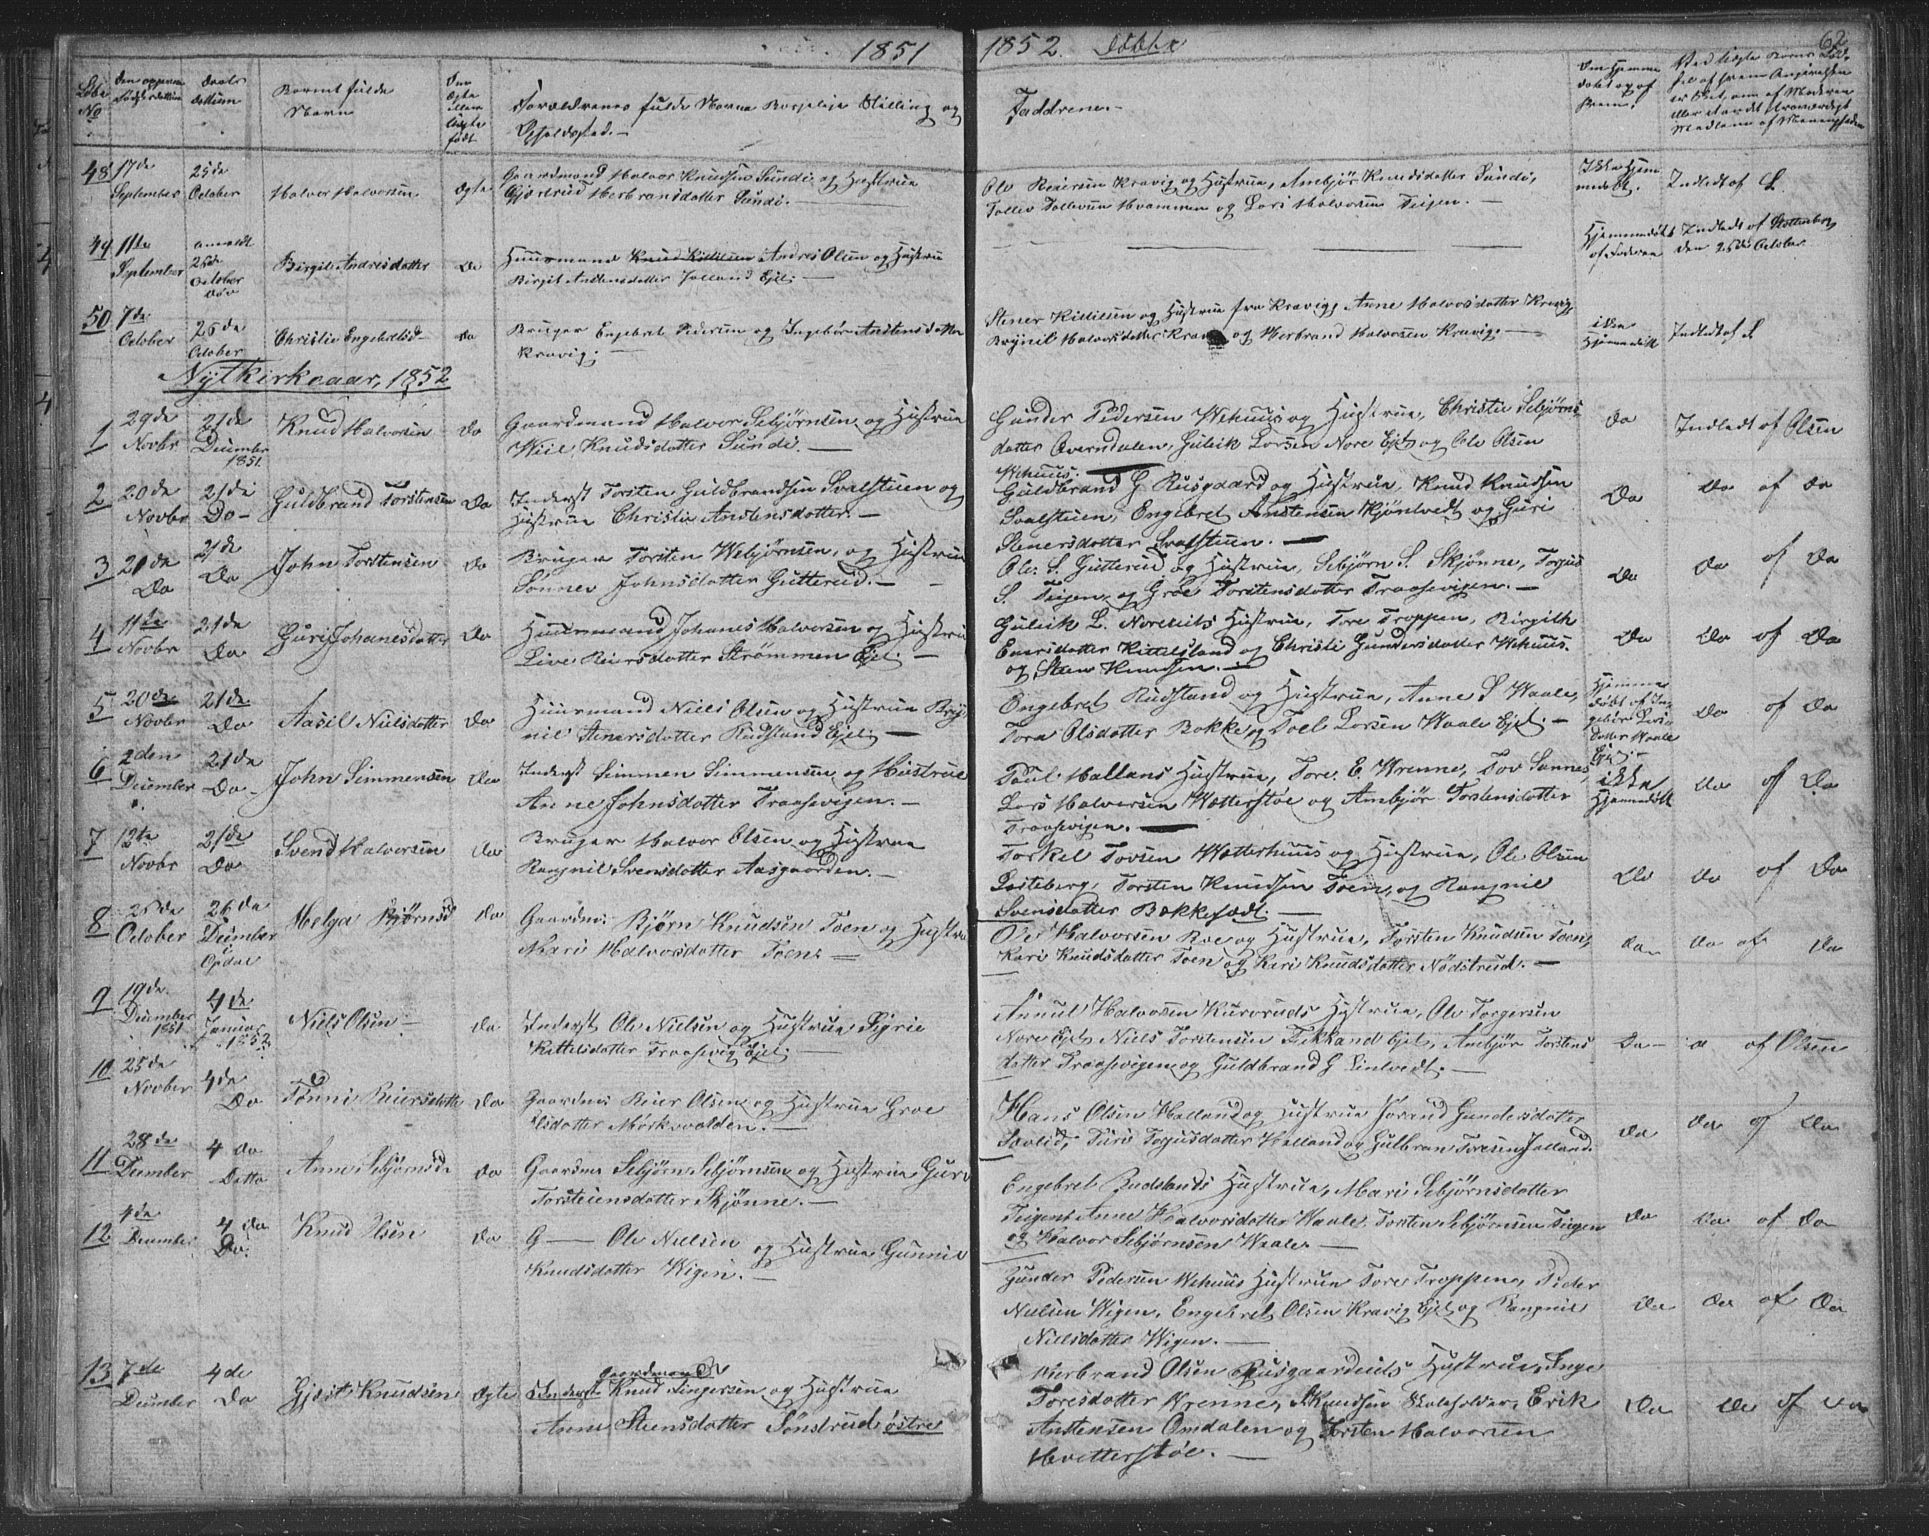 1851
1852. Døbte
62
Løbe No
Daabs dattum
Barnets fulde Navn
Forældrenes fulde Navne Borgelige Stilling og Opholdssted.
Faddrene.
48 17de September
25de October
Halvor Halvorsen
Ægte
Gaardmand Halvor Knudsen Sundi og Hustrue
Gjertrud Herbransdatter Sundi.
Ole Reiersen Kravig og Hustrue, Anebjør Knudsdatter Sundi,
Tollev Tollevsen Hvammen og Lars Halvorsen Teigen.
Ikke Hjemmedøbt.
Indledt af S.
49 11te September
anmeldt 25de October
Birgit Andresdatter
Do
Huusmand Knud Kittilsen Andres Olsen og Hustrue
Birgit Anstensdatter Jolland Eje.
Hjemmedøbt af Faderen
Indledt af
den 25de October
50 7de October
26de October
Christie Engebretsd
do
Bruger Engebret Pedersen og Ingebør Anstensdatter
Kravig.
Stener Kittilsen og Hustrue fra Kravig, Anne Halvorsdatter Kravig,
Brynil Halvorsdatter Kravig og Herbrand Halvorsen Kravig.
ikke Hjemmedøbt
Indledt af S
Nytkirkeaar, 1852
1 29de Novbr
21de December 1851.
Knud Halvorsen
do
Gaardmand Halvor Sebjørnsen og Hustrue
Knudsdatter Sundi.
Gunder Pedersen Wehuus og Hustrue, Christie Sebjørns-
datter Overndalen, Guleik Larsen Nore Eje og Ole Olsen
Wehuus.
Do
Indledt af Olsen
2 20de Novbr
21de Do
Guldbrand Torstensen
Do
Inderst Torsten Guldbrandsen Svalstuen og
Hustrue Christie Anstensdatter.
Guldbrand G Rusgaard og Hustrue, Knud Knudsen
Svalstuen, Engebret Anstensen Kjøntvedt og Guri
Stenersdatter Svalstuen.
Do
Do af do
3 21de Do
21de Do
John Torstensen
do
Bruger Torsten Webjørnsen, og Hustrue
Sønnev Johnsdatter Gutterud.
Ole S. Gutterud og Hustrue, Sebjørn S. Skjønne, Torjus
S. Teigen og Groe Torstensdatter Traasevigen.
Do
Do af Do
4 11te Novbr
21de Do
Guri Johanesdatter
Do
Huusmand Johanes Halvorsen og Hustrue
Live Reiersdatter Strømmen Eje.
Guleik L. Noreeits Hustrue, Tore Troppen, Birgith
Enersdatter Kittelsland og Christi Gundersdatter Wehuus.
og Steen Knudsen.
Do
Do af Do
5 20de Novbr
21de Do
Aasil Nielsdatter
Do
Huusmand Niels Olsen og Hustrue Bryn-
nil Stenersdatter Rudsland Eje.
Engebret Rudsland og Hustrue, Anne S Waale,
Tora Olsdatter Bakke, og Toel Larsen Waale Eje.
Hjemmedøbt af Ingebør Larsdatter Waale Eje.
Do af Do
6 2den December
21de Do
John Simmensen
do
Inderst Simmen Simmensen og Hustrue
Anne Johnsdatter Traasevigen.
Paul Hallans Hustrue, Tore E. Wrenne, Tov Sannes,
Lars Halvorsen Wætterstøe og Ambjør Torstensdatter
Traasevigen.
ikke Hjemmedøbt
do af Do
7 12te Novbr
21de Do
Svend Halvorsen
do
Bruger Halvor Olsen og Hustrue
Rangnil Svensdatter Aasgaarden.
Torkel Tovsen Wætterhuus og Hustrue, Ole Olsen
Torsten Knudsen Toen, og Rangnil
Svensdatter Bakkefædt.
Do
do af Do
8 25de October
26de December Opdal
Helga Bjørnsd
do
Gaardm. Bjørn Knudsen Toen og Hustrue
Mari Halvorsdatter Toen
Ole Halvorsen Roe og Hustrue, Torsten Knudsen Toen,
Kari Knudsdatter Toen og Kari Knudsdatter Nødstrud.
Do
do af do
9 19de December 1851
4de Januar 1852
Niels Olsen
do
Inderst Ole Nielsen og Hustrue Sigrie
Kittelsdatter Traasevig Eje.
Halvorsen Kurvruds Hustrue, Ole Torgersen
Nore Eje, Niels Torstensen Eje, Ambjør Torstens
datter Traasevigen og Guldbrand G Linlvedt.
Do
af Olsen
10 25de Novber
4de Do
Tønni Reiersdatte
Do
Gaardm Reier Olsen og Hustrue Groe
Olsdatter Mørkvolden.
Hans Olsen Halland og Hustrue Jørand Gundersdatter
Turi Torjusdatter Halland og Gulbran Toresen Jolland.
Do
do af do
11 28de December
4 do Ditto
Anne Sebjørnsda
do
Gaardm Sebjørn Sebjørnsen og Hustrue Guri
Torsteiensdatter Skjønne.
Engebret Rudslands Hustrue, Mari Sebjørnsdatter
Teigen, Anne Halvorsdatter Waale. Torsten Sebjørnsen Teigen
og Halvor Sebjørnsen Waale.
Do
do af do
12 4de December
4 do Do:
Knud Olsen
do
G— Ole Nielsen og Hustrue Gunnil
Knudsdatter Wigen.
Gunder Pedersen Wehuus Hustrue Tore Troppen, Peder
Nielsen Wigen, Engebret Olsen Kravig Eje og Rangnil
Nielsdatter Wigen.
Do
do af do
13 7de December
4de Do
Gjest Knudsen
Ægte
Gaardmand
Inderst Knud Lingersen og Hustrue
Anne Steensdatter Sønstrud østre
Herbrand Olsen Rusgaardeits Hustrue, Inge
Toresdatter Wrenne, S Knudsen Skoleholder, Erik
Anstensen Omdalen og Torsten Halvorsen
Hvetterstøe.
Do
do af do